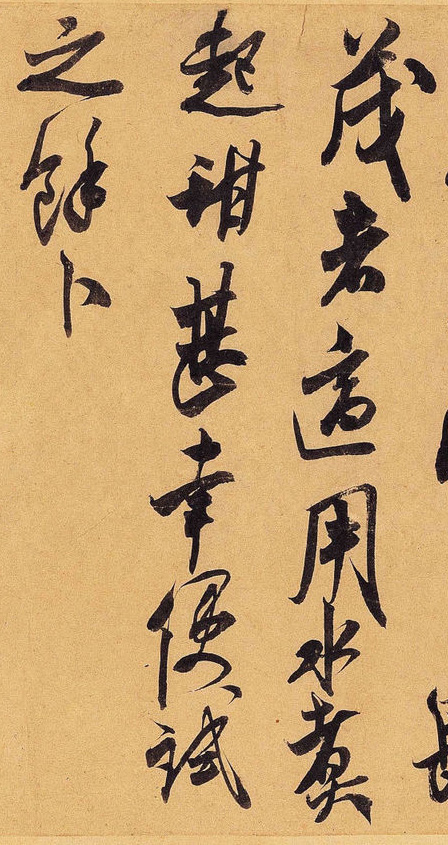 茂者適用水煮
起甜甚幸便試
之餘卜